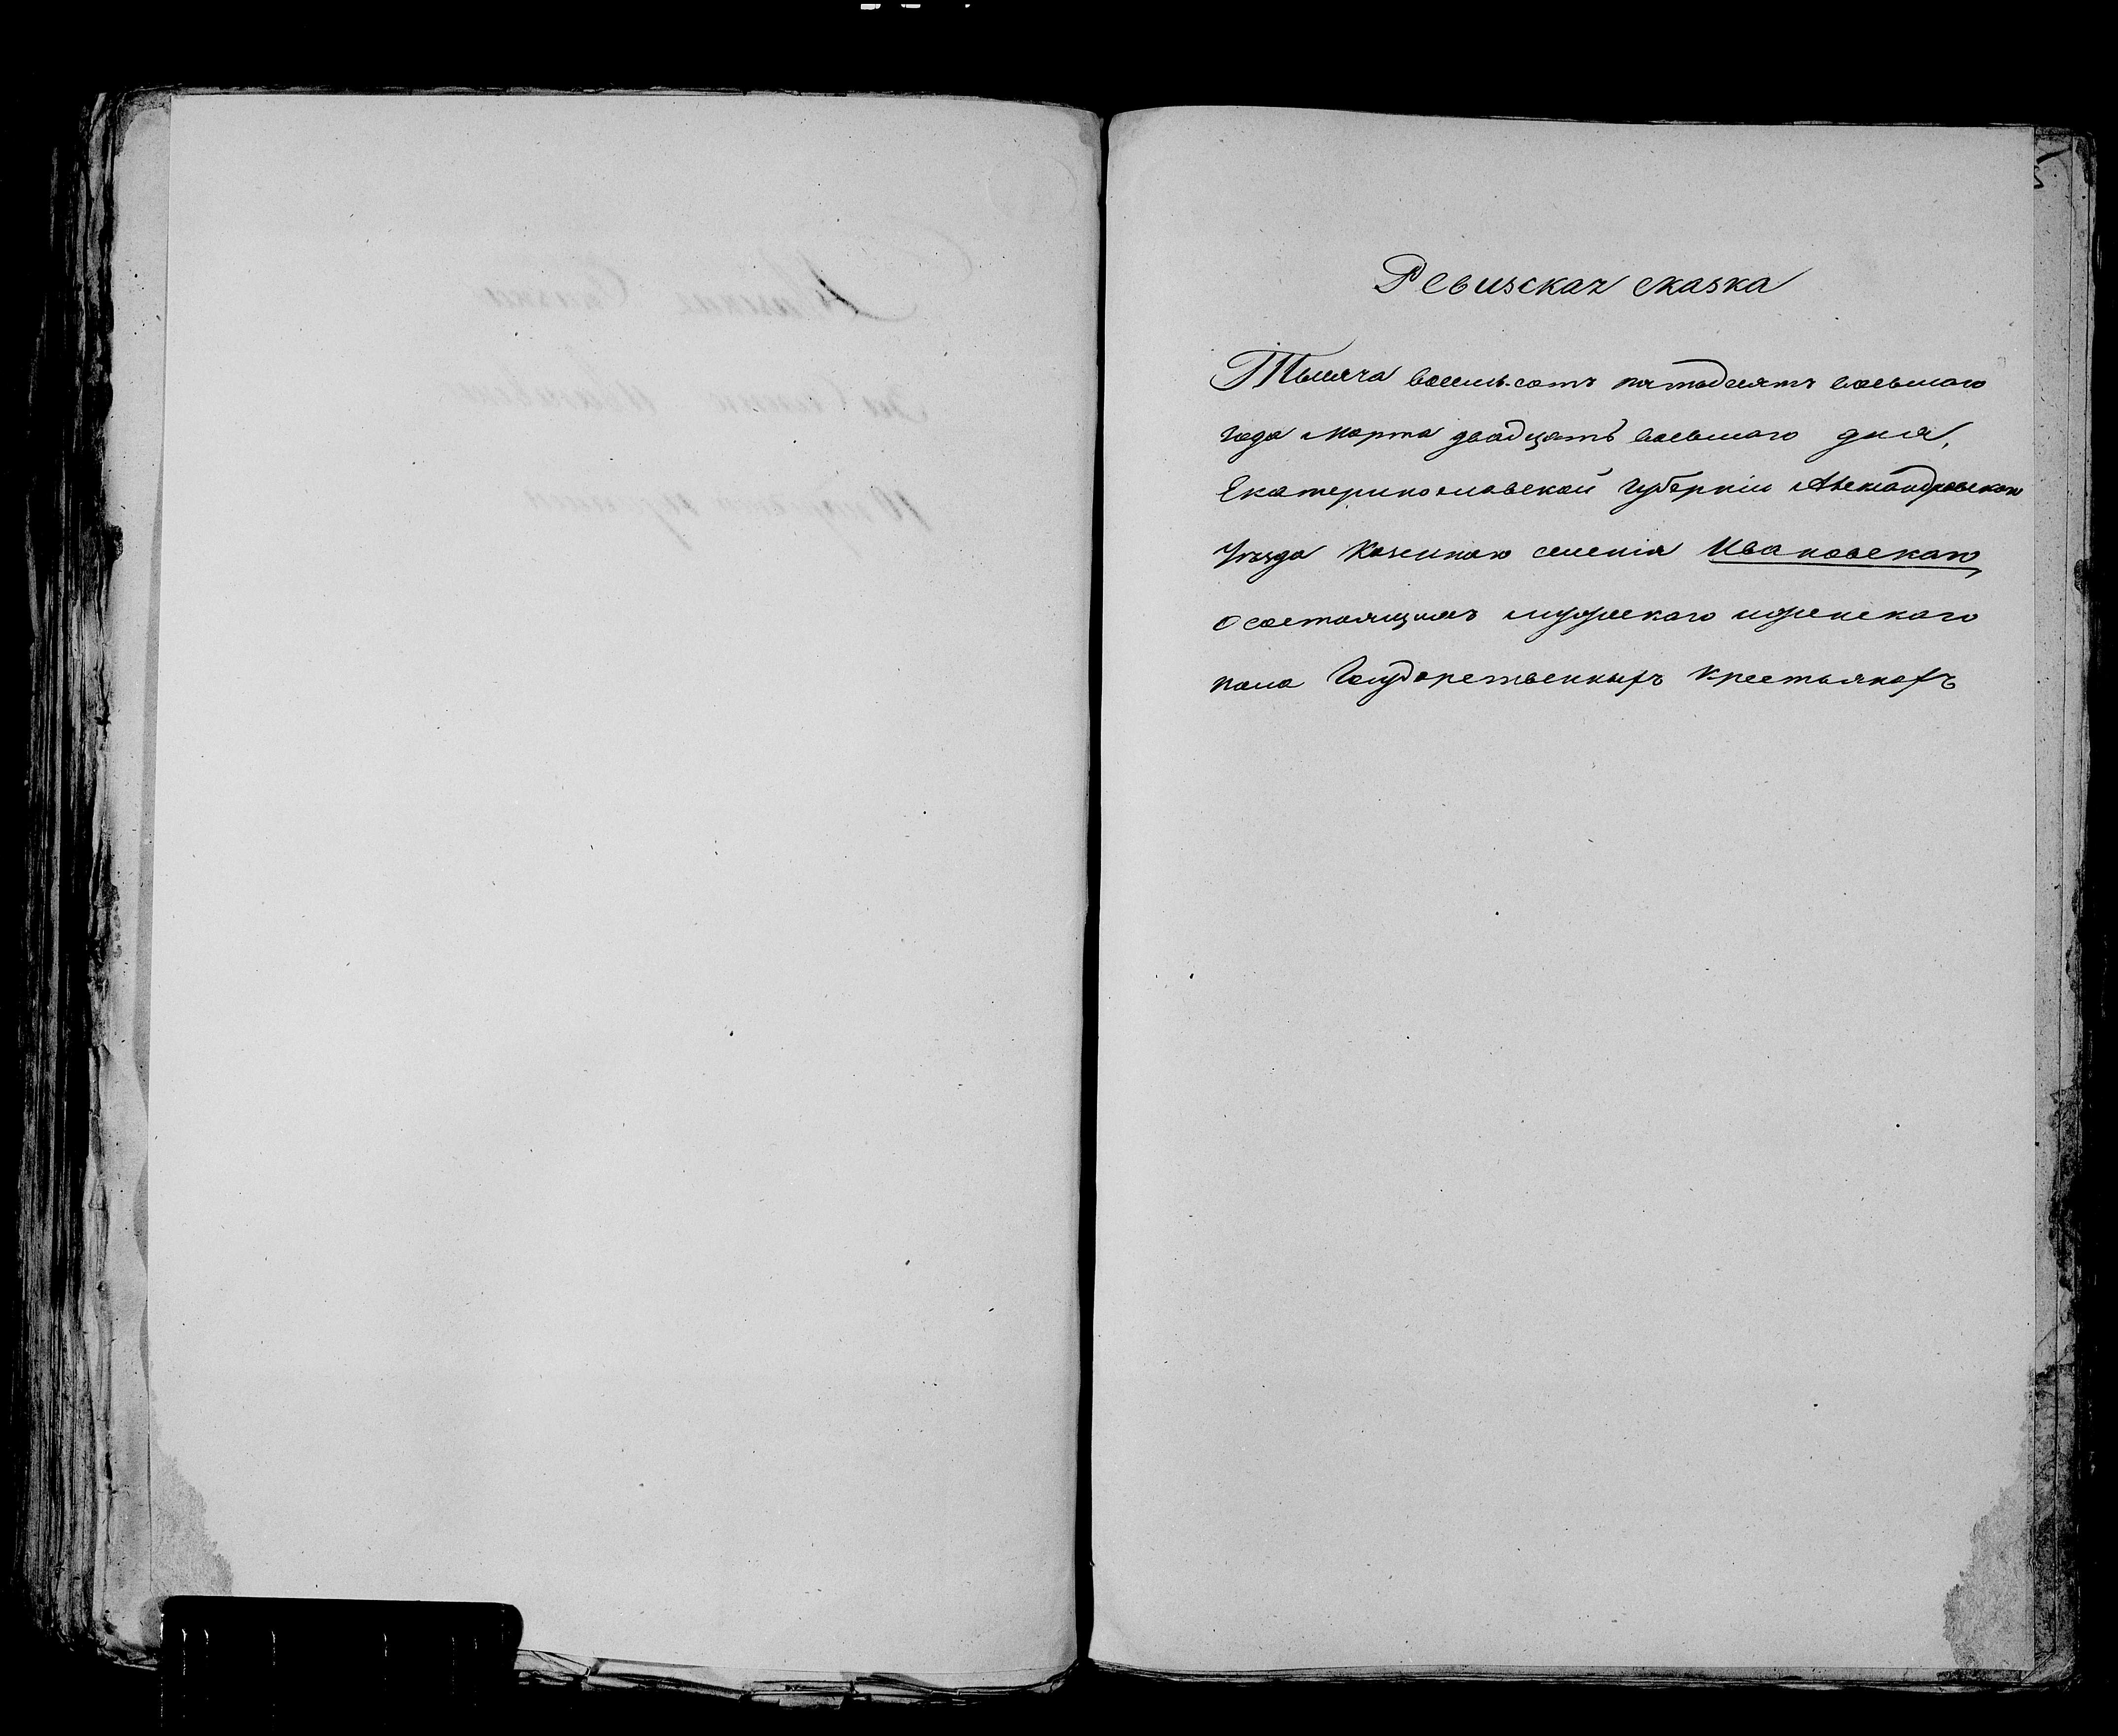 Ревизская сказка
Тысяча восемь сотъ пятьдесятъ восьмого
года марта двадцать восьмого дня,
Екатеринославской губерніи Александровского
Уѣзда Казенного селенія Ивановскаго
о состоящихъ мужескаго иженскаго
пола Государственныхъ крестьянахъ